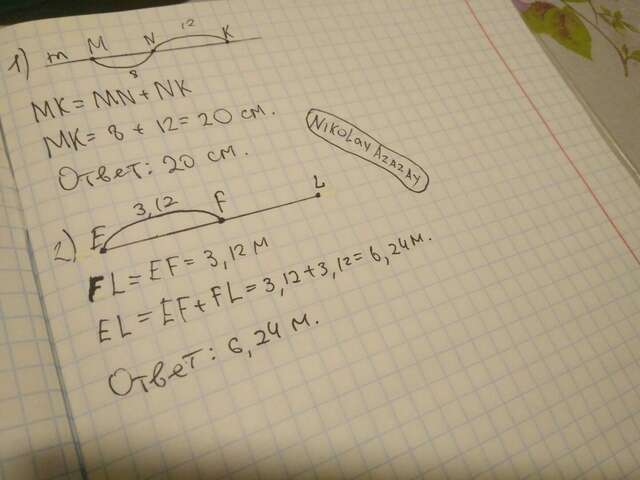 1) m M N K
12
8
MK = MN + NK
MK = 8 + 12 = 20 см.
Ответ: 20 см.
NIKOLAY AZAZAY
2) E F L
3,12
FL = EF = 3,12 м
EL = EF + FL = 3,12 + 3,12 = 6,24 м.
Ответ: 6,24 м.